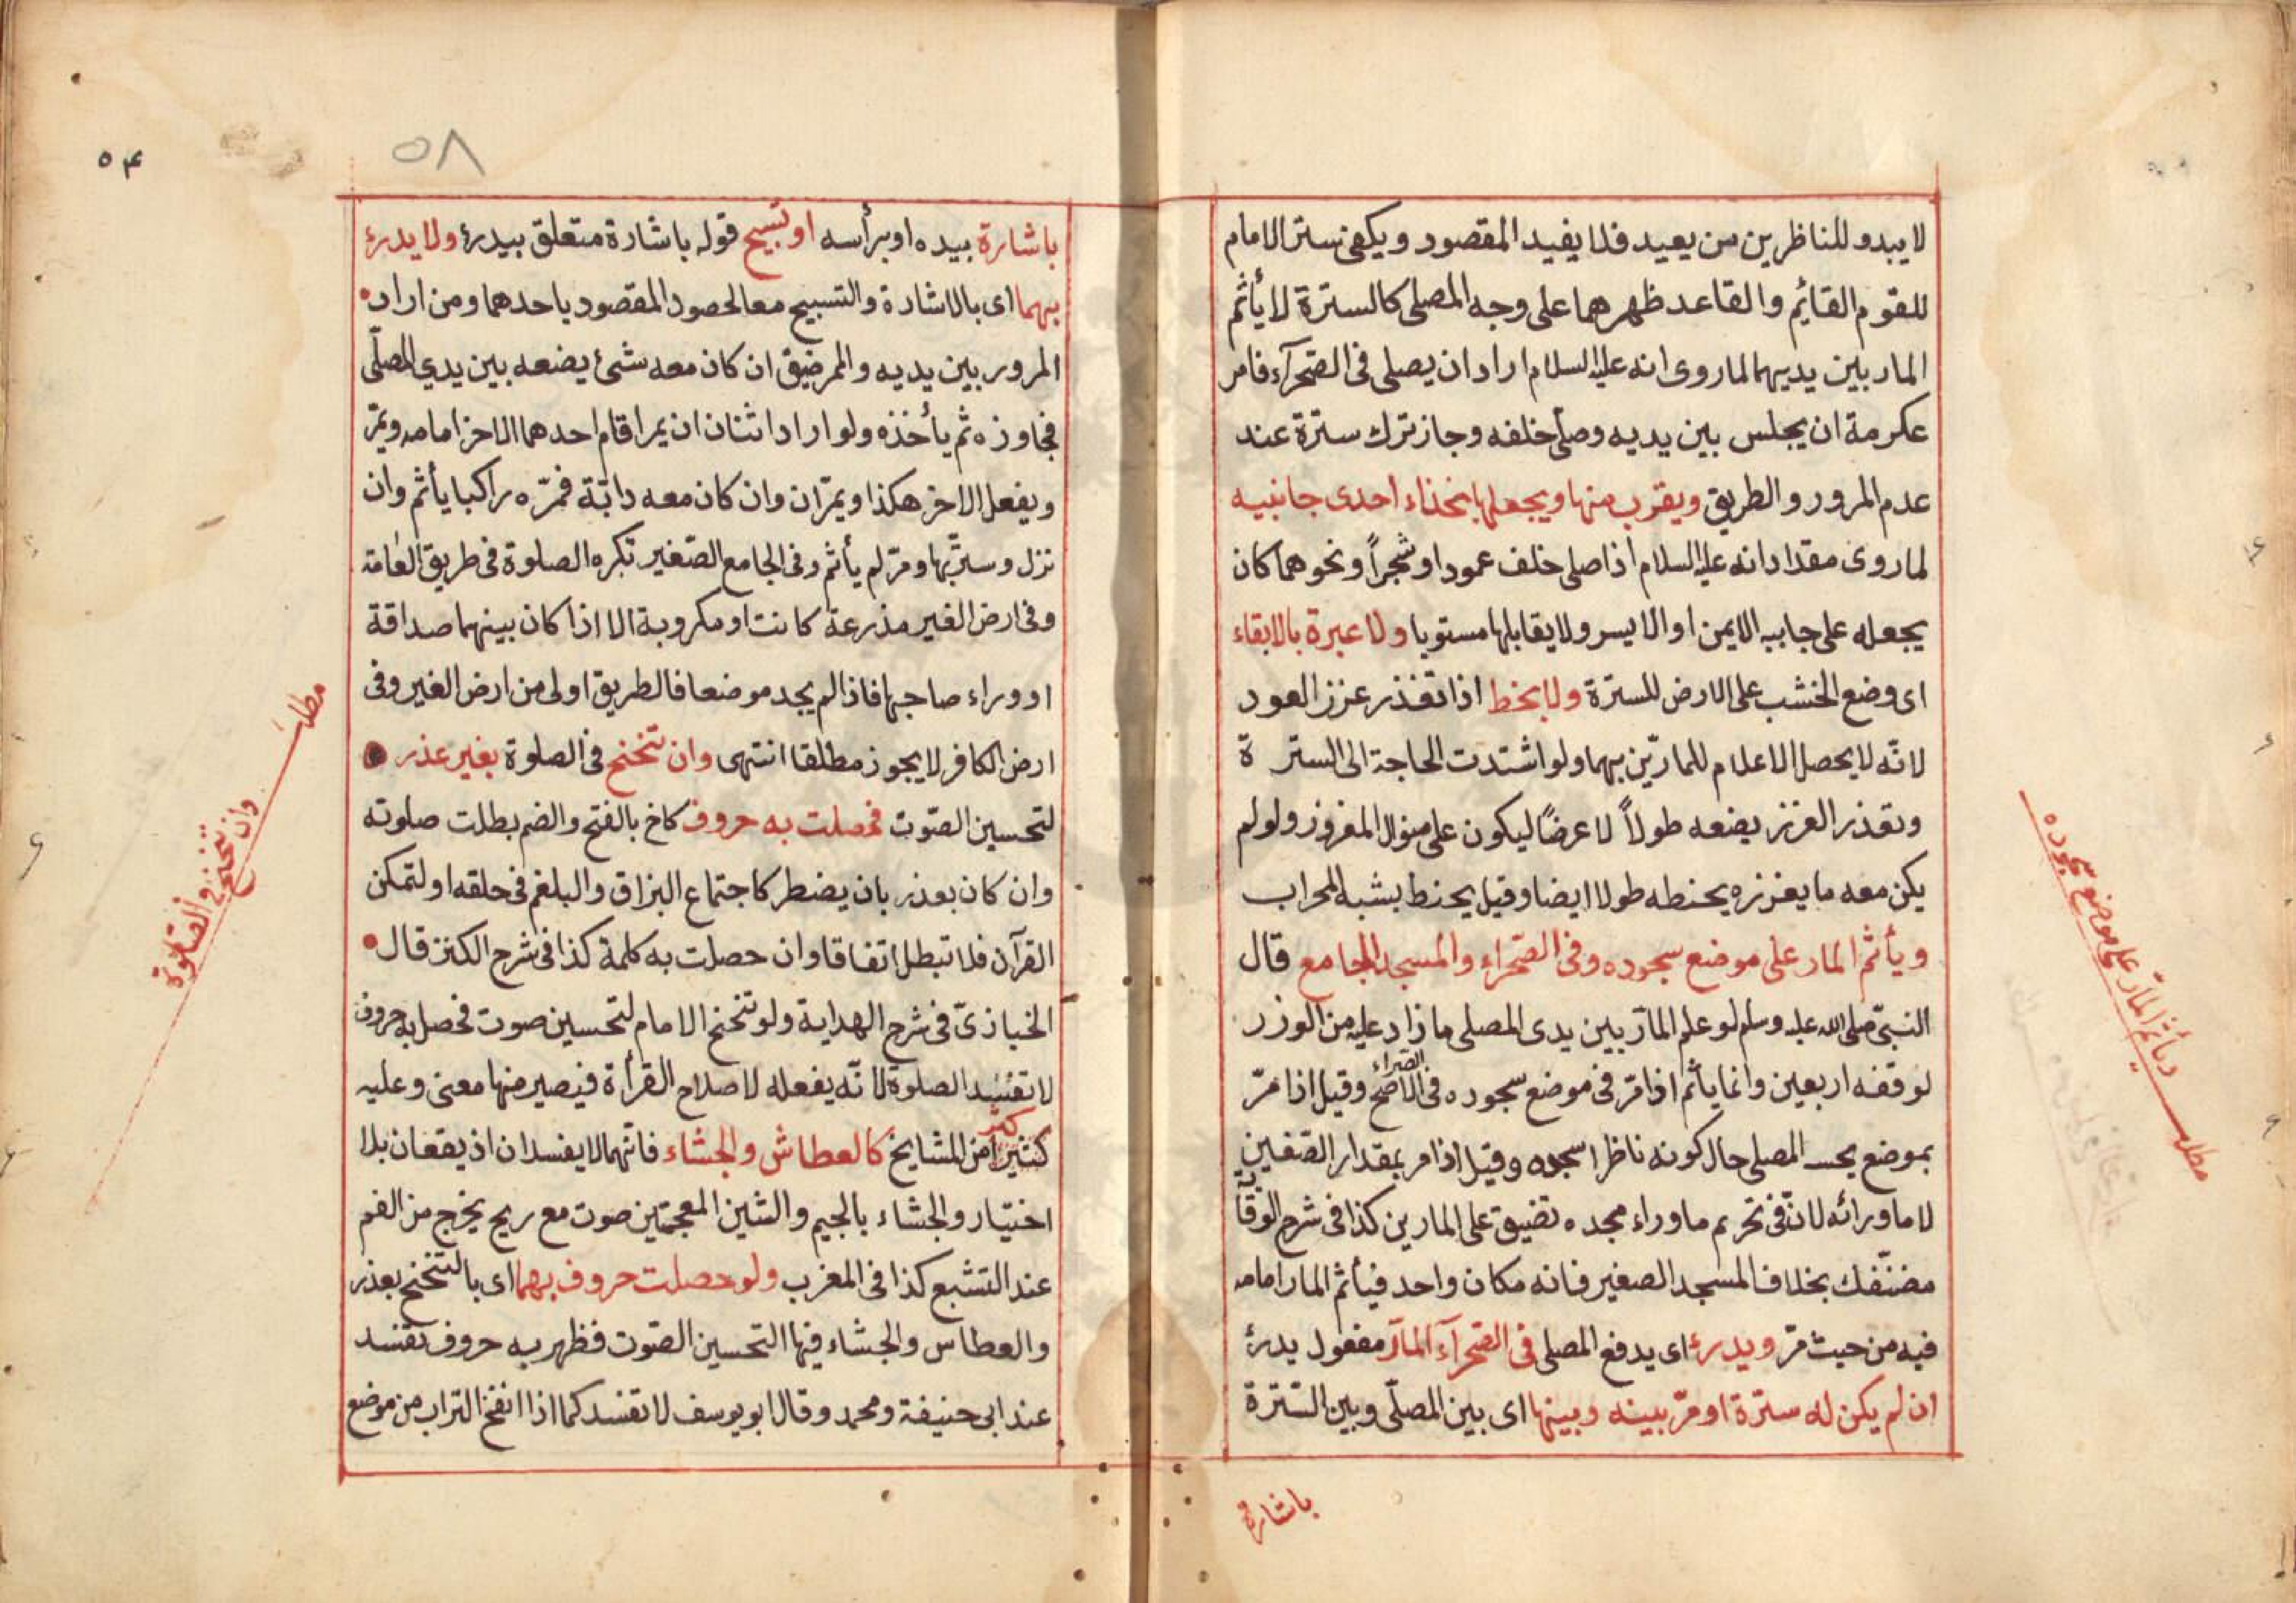 لا يبدو للناظرين من بعيد فلا يفيد المقصود ويكفى ستر الامام
للقوم القائم والقاعد ظهرهما على وجه المصلى كالسترة لا يأثم
المار بين يديهما لما روى انه عليه السلام اراد ان يصلى فى الصحرآء فامر
عكرمة ان يجلس بين يديه وصلى خلفه وجاز ترك سترة عند
عدم المرور والطريق ويقرب منها ويجعلها بحذاء احدى جانبيه
لما روى مقداد انه عليه السلام اذا صلى خلف عمود او شجراً ونحوهما كان
يجعله على جانبه الايمن او الايسر ولا يقابلها مستويا ولا عبرة بالابقاء
اى وضع الخشب على الارض للسترة ولا بخط اذا تعذر غرز العود
لانّه لا يحصل الاعلام للمارّين بهما ولو اشتدت الحاجة الى السترة
وتعذر الغرز يضعه طولاً لا عرضاً ليكون على منوال المغروز ولو لم
يكن معه ما يغرزه يخطه طولا ايضا وقيل يخط بشبه المحراب
ويأثم المار على موضع سجوده وفى الصحراء والمسجد الجامع قال
النبىّ صلى الله عليه وسلم لو علم المارّ بين يدى المصلى ماذا عليه من الوزر
لوقفه اربعين وانما يأثم اذا مرّ فى موضع سجوده فى الصحراء الاصح وقيل اذا مرّ
بموضع يحس المصلى حال كونه ناظرا سجده وقيل اذا مر بمقدار الصّفين
لا ما ورائه لانّ فى تحريم ما وراء مجده تضييق على المارين كذا فى شرح الوقاية
مضنّفك بخلاف المسجد الصغير فانه مكان واحد فيأثم المار امامه
فيه من حيث مرّ ويدرئ اى يدفع المصلى فى الصحرآء المارّ مفعول يدرئ
ان لم يكن له سترة او مرّ بينه وبينها اى بين المصلّى وبين السّترة
باشارة
ويأثم المارّ على موضع سجوده
مطلب
٥٤
٥٨
باشارة بيده او برأسه او تسبيح قوله باشارة متعلق بيدرئ ولا يدرئ
بهما اى بالاشارة والتسبيح معا لحصود المقصود باحدهما ومن اراد
المرور بين يديه والممر ضيق ان كان معه شئ يضعه بين يدي المصلّى
فجاوزه ثم يأخذه ولو اراد اثنان ان يمرا قام احدهما الاخر امامه ويمرّ
ويفعل الاخر هكذا ويمرّان وان كان معه دابّة فمرّه راكبا يأثم وان
نزل وستر بها ومرّ لم يأثم وفى الجامع الصّغير تكره الصلوة فى طريق العامة
وفى ارض الغير مذرعة كانت او مكروبة الا اذا كان بينهما صداقة
او وراء صاحبها فاذا لم يجد موضعا فالطريق اولى من ارض الغير وفى
ارض الكافر لا يجوز مطلقا انتهى وان تنحنح فى الصلوة بغير عذر
لتحسين الصّوت فحصلت به حروف كاخ بالفتح والضم بطلت صلوته
وان كان بعذر بان يضطر كاجتماع البزاق والبلغم فى حلقه او لتمكن
القرآن فلا تبطل اتفاقا وان حصلت به كلمة كذا فى شرح الكنز قال
الخبازىّ فى شرح الهداية ولو تنحنح الامام لتحسين صوت فحصل به حروف
لا تفسد الصلوة لانّه يفعله لاصلاح القرأة فيصير منها معنى وعليه
كثير من المشايخ كالعطاش والجشاء فانّهما لا يفسدان اذ يقعان بلا
اختيار والجشاء بالجيم والشين المعجمتين صوت مع ريح يخرج من الفم
عند التشبع كذا فى المغرب ولو حصلت حروف بهما اى بالتنحنح بعذر
والعطاس والجشاء فيها التحسين الصّوت فظهر به حروف تفسد
عند ابى حنيفة ومحمد وقال ابو يوسف لا تفسد كما اذا انفخ التراب من موضع
مطلب
وان تنحنح فى الصلوة